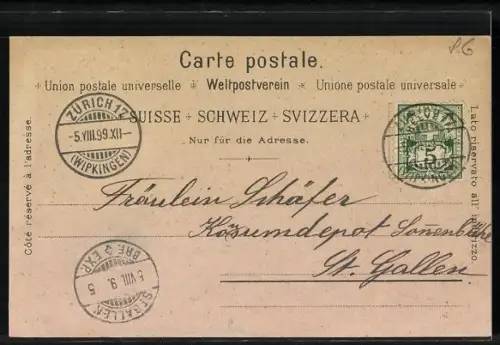 P.6
Carte postale.
Union postale universelle * Weltpostverein * Unione postale universale
SUISSE + SCHWEIZ + SVIZZERA
Nur für die Adresse.
Côté réservé à l'adresse.
Lato riservato all' indirizzo
ZÜRICH 12
-5.VIII.99.XII-
(WIPKINGEN)
5
Fräulein Schäfer
Käsumdepot
St. Gallen
ST. GALLEN
5.VIII.9. 5
BRF. & EXP.